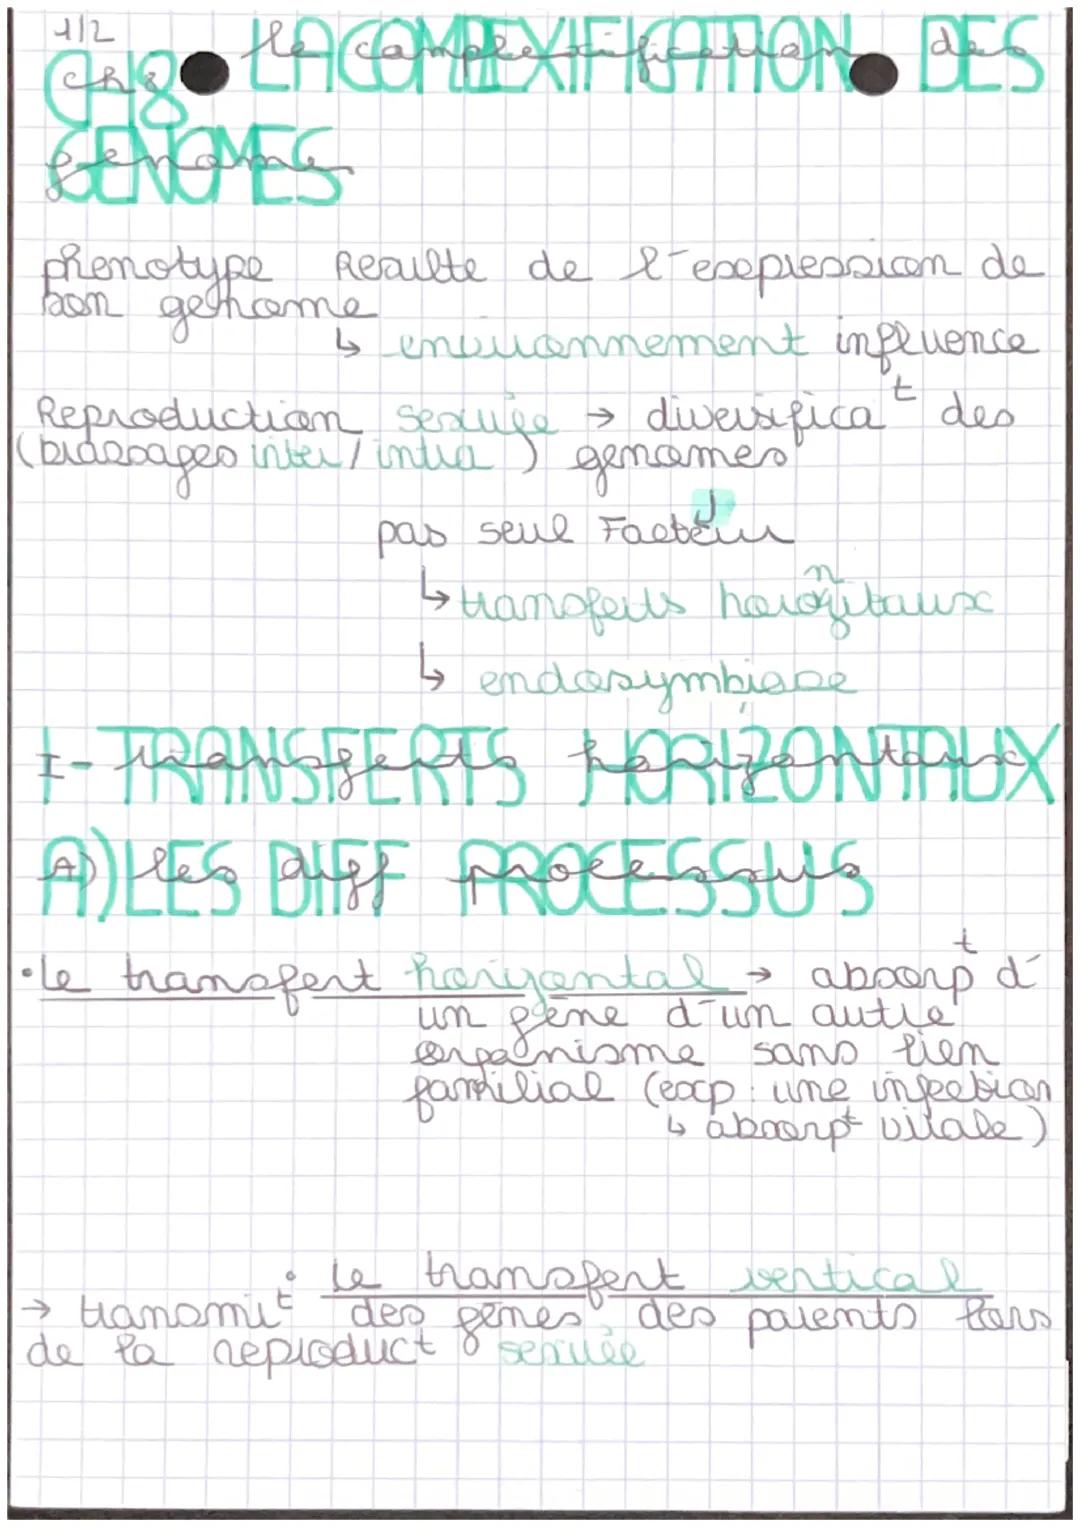 1/2
CH8 LA COMPLEXIFICATION DES
GENOMES
phenotype Resulte de l'expression de
son genome
↳ environnement influence
Reproduction sexuée → diversificat des
(brassages inter / intra) genomes
pas seul Facteur
↳ transferts horizontaux
↳ endosymbiose
I- TRANSFERTS HORIZONTAUX
A) LES DIFF PROCESSUS
• le transfert horizontal → absorpt d'
un gène d'un autre
organisme sans lien
familial (exp : une infection
↳ absorpt virale)
• le transfert vertical
→ transmit des gènes des parents lors
de la reproduct sexuée